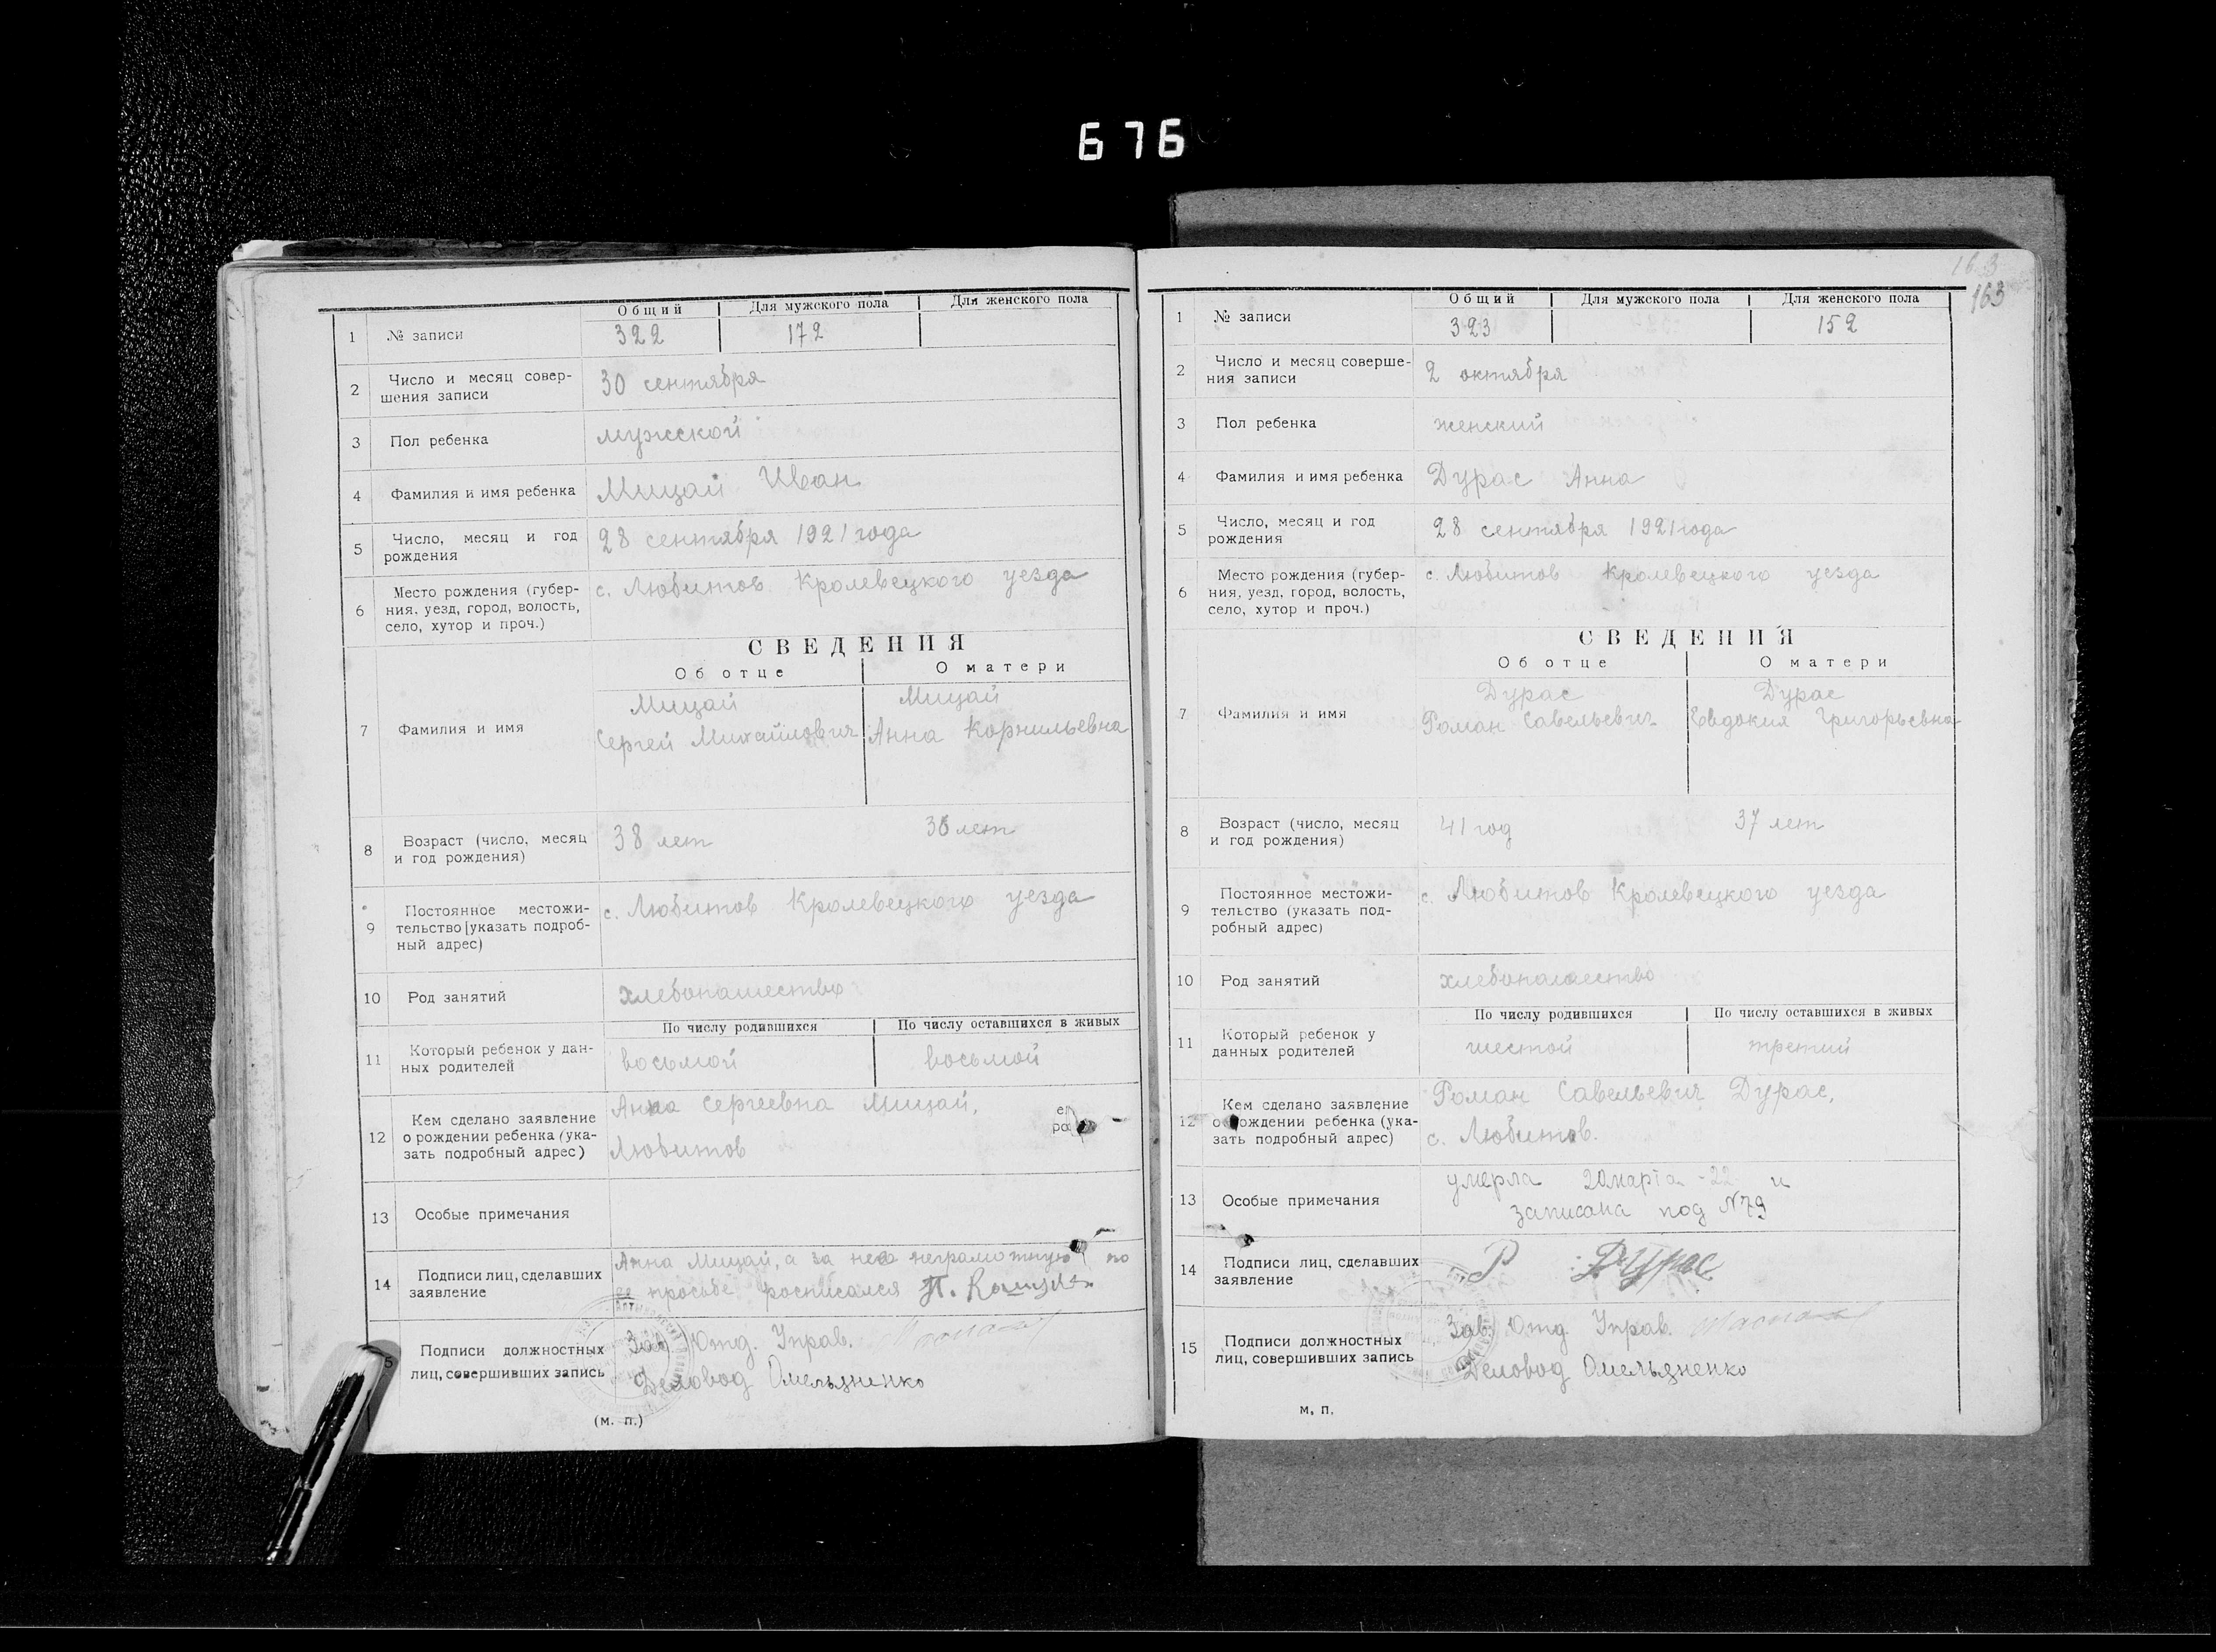 676
Общий Для мужского пола Для женского пола
1 № записи 322 172
2 Число и месяц совер-
шения записи
30 сентября
3 Пол ребенка мужской
4 Фамилия и имя ребенка Мицай Иван
5 Число, месяц и год
рождения
28 сентября 1921 года
6 Место рождения (губер-
ния, уезд, город, волость,
село, хутор и проч.)
с. Любитов Кролевецкого уезда
СВЕДЕНИЯ
Об отце О матери
7 Фамилия и имя
Мицай Мицай
Сергей Михайлович Анна Корнильевна
8 Возраст (число, месяц
и год рождения)
38 лет 36 лет
9 Постоянное местожи-
тельство [указать подроб-
ный адрес)
с. Любитов Кролевецкого уезда
10 Род занятий хлебопашество
По числу родившихся По числу оставшихся в живых
11 Который ребенок у дан-
ных родителей
восьмой восьмой
12 Кем сделано заявление
о рождении ребенка (ука-
зать подробный адрес)
Анна Сергеевна Мицай,
Любитов
13 Особые примечания
14 Подписи лиц, сделавших
заявление
Анна Мицай, а за нею неграмотную по
ее просьбе росписался П.
15 Подписи должностных
лиц, совершивших запись
Зав. Отд. Управ.
Деловод Омельяненко
(м. п.)
163
163
Общий Для мужского пола Для женского пола
1 № записи 323 152
2 Число и месяц соверше-
ния записи
2 октября
3 Пол ребенка женский
4 Фамилия и имя ребенка Дурас Анна
5 Число, месяц и год
рождения
28 сентября 1921 года
6 Место рождения (губер-
ния, уезд, город, волость,
село, хутор и проч.)
с. Любитов Кролевецкого уезда
СВЕДЕНИЯ
Об отце О матери
7 Фамилия и имя
Дурас Дурас
Роман Савельевич Евдокия Григорьевна
8 Возраст (число, месяц
и год рождения)
41 год 37 лет
9 Постоянное местожи-
тельство (указать под-
робный адрес)
с. Любитов Кролевецкого уезда
10 Род занятий хлебопашество
По числу родившихся По числу оставшихся в живых
11 Который ребенок у
данных родителей
шестой третий
12 Кем сделано заявление
о рождении ребенка (ука-
зать подробный адрес)
Роман Савельевич Дурас,
с. Любитов.
13 Особые примечания
умерла 20 марта -22 и
записана под №79
14 Подписи лиц, сделавших
заявление
Р Дурас
15 Подписи должностных
лиц, совершивших запись
Зав. Отд. Управ.
Деловод Омельяненко
м. п.